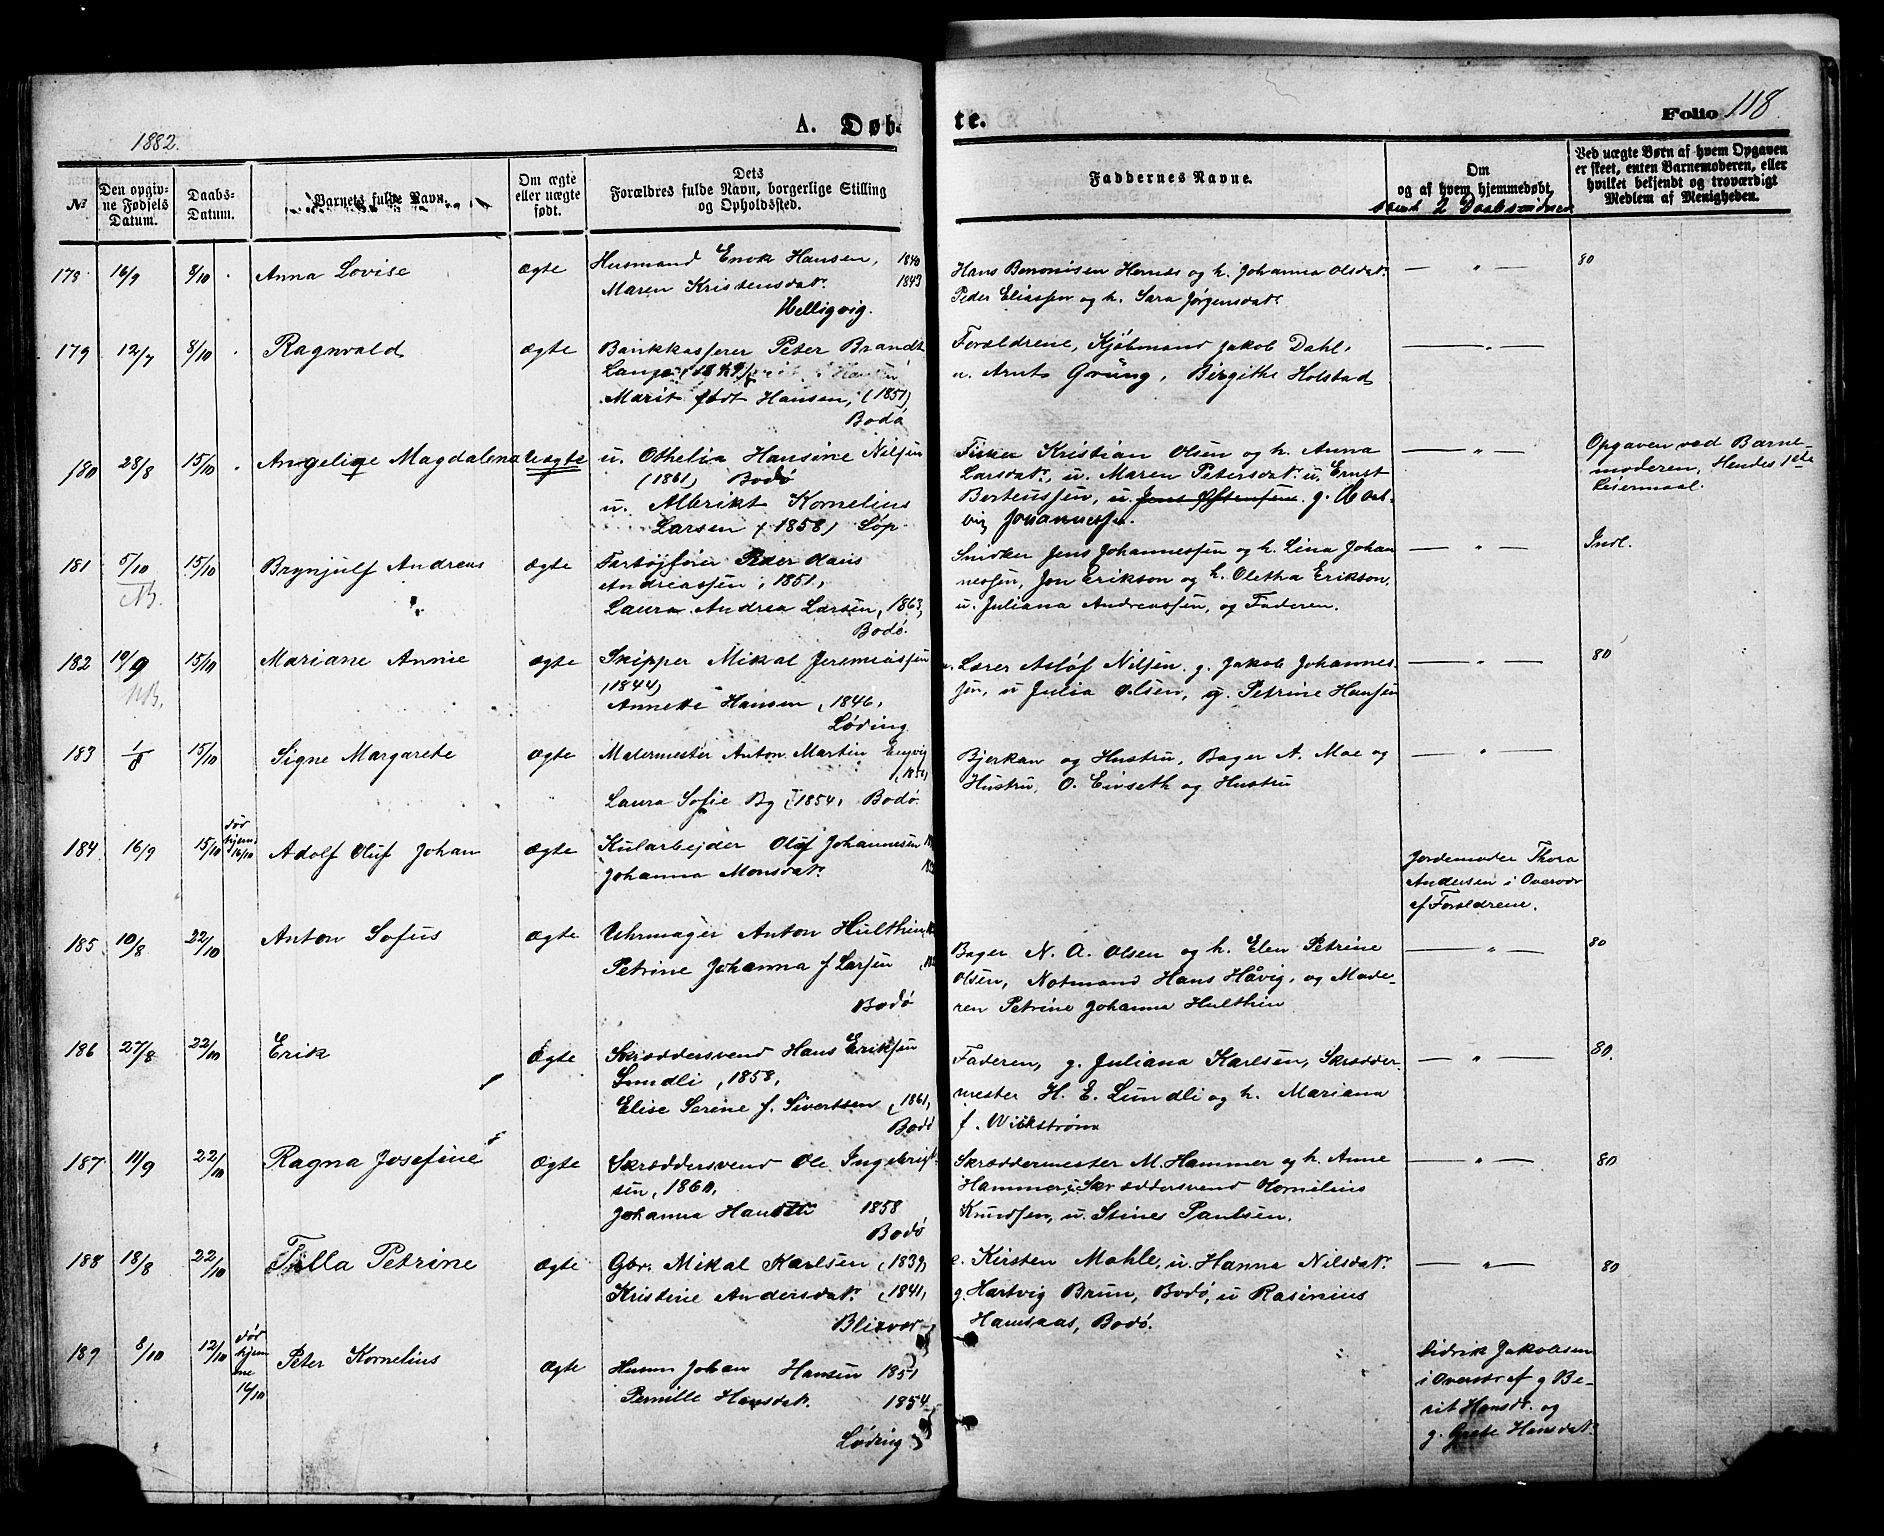 1882.
A. Døb-
te.
Folio 118
№
Den opgiv-
ne Fødsels
Datum.
Daabs-
Datum.
Barnets fulde Navn.
Om ægte
eller uægte
født.
Dets
Forældres fulde Navn, borgerlige Stilling
og Opholdssted.
Faddernes Navne.
Om
og af hvem hjemmedøbt,
samt 2 Daabsvidner
Ved uægte Børn af hvem Opgaven
er skeet, enten Barnemoderen, eller
hvilket bekjendt og troværdigt
Medlem af Menigheden.
178 16/9 8/10 Anna Lovise ægte Husmand Enok Hansen, 1840
Maren Kristensdatr. 1843
Helligvig.
Hans Benonisen Hernes og h. Johanna Olsdatr.
Peder Eliassen og h. Sara Jørgensdatr.
— " — 80
179 12/7 8/10 Ragnvald ægte Bankkasserer Peter Brandt
Lange (1849)
Marit født Hansen, (1851)
Bodø
Forældrene, Kjøbmand Jakob Dahl,
u. Arnt Grüng, Birgithe Holstad
— " —
180 28/8 15/10 Angeliqe Magdalena Uægte u. Othelia Hansine Nilsen
(1861) Bodø
u. Albrikt Kornelius
Larsen (1858) Løp.
Fisker Kristian Olsen og h. Anna
Larsdatr., u. Maren Petersdatr. u. Ernst
Berteussen, u. g. Hart-
vig Johannessen.
— " —
Opgaven ved Barne-
moderen, Hendes 1ste
Leiermaal.
181 5/10 15/10 Brynjulf Andreas ægte Fartøjfører Peder Hans
Andreassen, 1851,
Laura Andrea Larsen, 1863,
Bodø.
NB.
Snidker Jens Johannessen og h. Lina Johan
nessen, Jon Erikson og h. Oletha Erikson,
u. Juliana Andreassen, og Faderen.
— " — Indl.
182 10/9 15/10 Mariane Annie ægte Skipper Mikal Jeremiassen
(1844)
Annette Hansen, 1846,
Løding
NB.
u. Lærer Asløf Nilsen, g. Jakob Johannes-
sen, u Julia Olsen, g. Petrine Hansen
— " — 80
183 1/8 15/10 Signe Margarete ægte Malermester Anton Martin Engvig
Laura Sofie By (1854, Bodø.
Bjerkan og Hustru, Bager A. Moe og
Hustru, O. Eivseth og Hustru
— " —
184 16/9 15/10 dør
hjem
16/10 Adolf Oluf Johan ægte Kularbejder Oluf Johannesen
Johanna Monsdatr.
Jordemoder Thora
Andersen i Overvær
af Forældrene.
185 10/8 22/10 Anton Sofus ægte Uhrmager Anton Hulthin,
Petrine Johanna f. Larsen
Bodø
Bager N. A. Olsen og h. Elen Petrine
Olsen, Notmand Hans Håvig, og Mode-
ren Petrine Johanna Hulthin
— " — 80
186 27/8 22/10 Erik Ægte Skræddersvend Hans Eriksen
Sundli, 1858,
Elise Serine f. Sivertsen, 1861,
Bodø
Faderen, g. Juliana Karlsen, Skrædder-
mester H. E. Lundli og h. Mariana
f. Wikstrøm
— " — 80.
187 11/9 22/10 Ragna Josefine Ægte Skræddersvend Ole Ingebrigt-
sen, 1860,
Johanna 1858
Bodø
Skræddermester M. Hammer og h. Anne
Hammer, Skræddersvend Kornelius
Knudsen, u. Stine Paulsen.
— " — 80
188 18/8 22/10 Tilla Petrine ægte Gbr. Mikal Karlsen, 1839,
Kristine Andersdatr. (1841,
Blixvær
e. Kirsten Mohle, u. Hanna Nilsdatr.
g. Hartvig Brun, Bodø, u Rasinius
Hansaas, Bodø.
— " — 80
189 8/10 12/10 dør
hjem
me
16/10 Peter Kornelius ægte Husm. Johan Hansen 1851
Pernille Hansdatr. 1854
Løding
Didrik Jakobsen
i Overvær af g Be-
rit Hansdr. og
g. Grete Hansdatr.